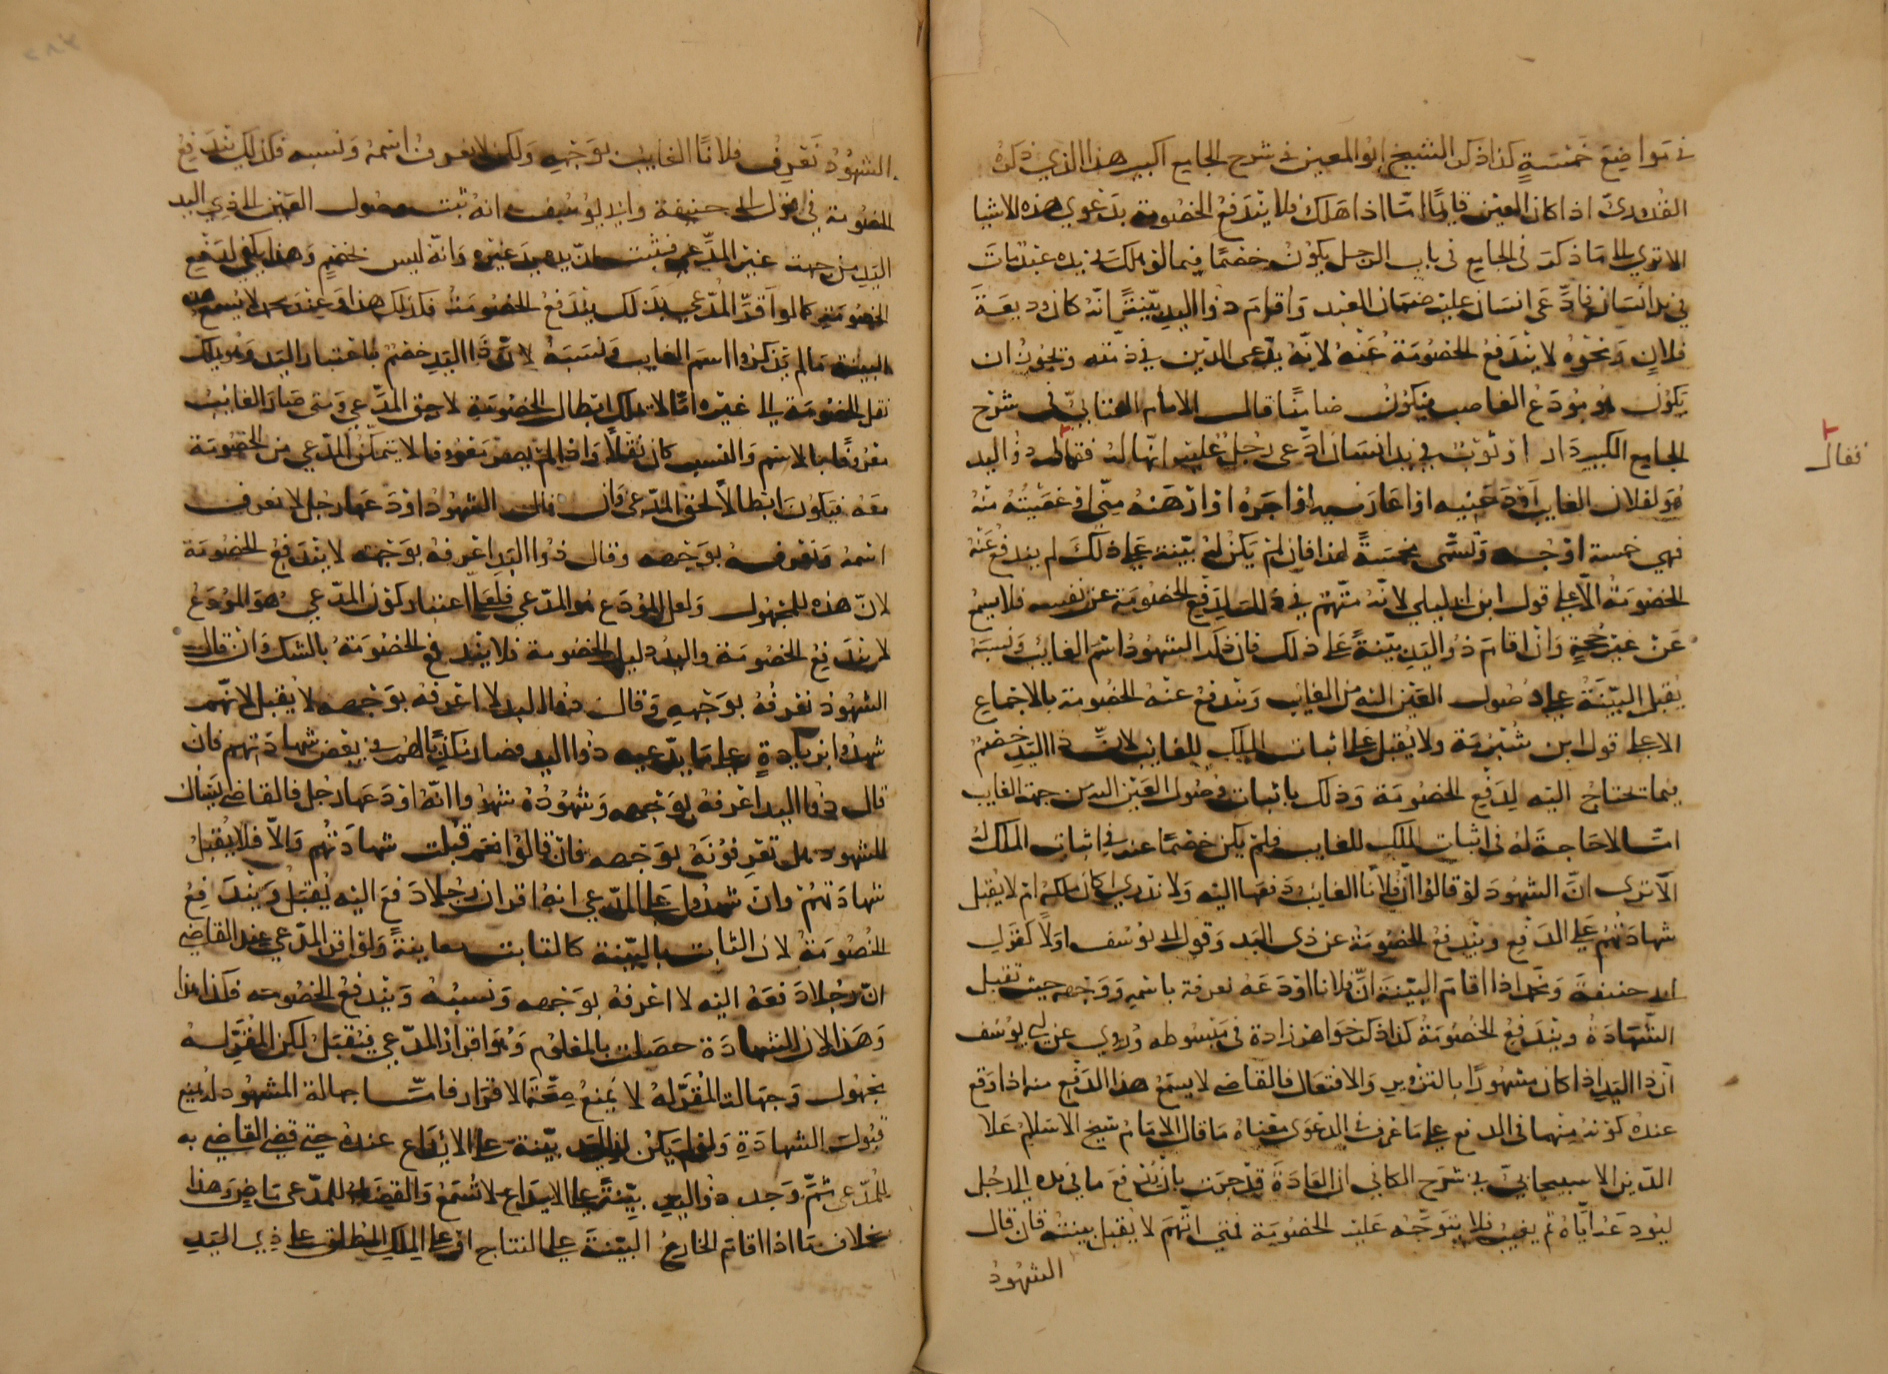 في مواضع خمسة كذا ذكر الشيخ ابو المعين في شرح الجامع اكبير هذا الذي ذكره
القدوري اذا كان العين قايما امّا اذا هلك فلا يندفع الخصومة بدعوي هذه الاشيا
الا تري الى ما ذكر في الجامع في باب الرجل يكون خصما فيما لو هلك في يده عبد مات
في يد انسان فادّعى انسان عليه ضمان العبد واقام ذوا اليد بيّنة انه كان وديعة
فلان ونحوه لا يندفع الخصومة عنه لانّه يدّعى الدين في ذمته ويجوز ان
يكون هو مودع الغاصب فيكون ضامنا قال الامام العتابيّ في شرح
الجامع الكبير دار او ثوب في يد انسان ادّعى رجل عليه انّها له فقال ذو اليد
هو لفلان الغايب اودعنيه او اعارنيه او اجره او ارهنه منّي او غصبته منه
فهي خمسة اوجه وتسمّى مخمسة لهذا فان لم يكن له بيّنة على ذلك لم يندفع عنه
الخصومة الّا على قول ابن ابي ليلي لانّه متّهم في ذلك لدفع الخصومة عن نفسه فلا يسمع
عن غير حجة وان اقام ذو اليد بيّنة على ذلك فان ذكر الشهود اسم الغايب ونسبه
يقبل البيّنة على وصول العين اليه من الغايب وتندفع عنه الخصومة بالاجماع
الا على قول ابن شبرمة ولا يقبل على اثبات الملك للغايب لانّ ذا اليد خصم
فيما تحتاج اليه لدفع الخصومة وذلك باثبات وصول العين اليه من جهة الغايب
امّا لا حاجة له في اثبات الملك للغايب فلم يكن خصما عنه في اثبات الملك
الّا ترى انّ الشهود لو قالوا ان فلانا الغايب دفعها اليه ولا ندري كان ملكه ام لا يقبل
شهادتهم على الدفع ويندفع الخصومة عن ذي اليد وقول ابي يوسف اولا كقول
ابي حنيفة ومحمد اذا اقام البيّنة انّ فلانا اودعه نعرفه باسمه ووجهه حيث تقبل
الشهادة ويندفع الخصومة كذا ذكر خواهر زادة في مبسوطه وروي عن ابي يوسف
ان ذا اليد اذا كان مشهورا بالتزوير والافتعال فالقاضي لا يسمع هذا الدفع منه اذا وقع
عنده كونه متهما في الدفع على ما عرف الدعوى معناه ما قال الامام شيخ الاسلام علا
الدين الاسبيجابي في شرح الكافي ان العادة قد جرت بان يدفع ما في يده الى رجل
ليودعه ايّاه ثم يغيب فلا يتوجّه عليه الخصومة فمتي اتّهم لا يقبل بينته فان قال
الشهود
فقال
الشهود نعرف فلانا الغايب بوجهه ولكن لا نعرف اسمه ونسبه فكذلك تندفع
الخصومة في قول ابي حنيفة وابي يوسف لانه ثبت وصول العين الى ذي اليد
اليد من جهة غير المدّعي فيثبت انّ يده يد غيره وانّه ليس بخصم وهذا يكفي لدفع
الخصومة كما لو اقرّ المدّعي بذلك يندفع الخصومة فكذلك هذا وعند محمد لا تسمع هذه
البينة ما لم يذكروا اسم الغايب ونسبه لانّ ذا اليد خصم باعتبار اليد وهو يملك
نقل الخصومة الى غيره امّا لا يملك ابطال الخصومة لا حق المدّعي ومتى صار الغايب
معروفا بالاسم والنسب كان نقلا واذا لم يصر معروفا لا يتمكن المدّعي من الخصومة
معه فيكون ابطالا لحق المدّعي وان قالت الشهود اودعها رجل لا نعرف
اسمه ونعرفه بوجهه وقال ذوا اليد اعرفه بوجهه لا يندفع الخصومة
لانّ هذه للمجهول ولعل المودع هو المدّعي فعلى اعتبار كون المدّعي هو المودع
لم يندفع الخصومة واليد دليل الخصومة فلا يندفع الخصومة بالشك وان قالت
الشهود نعرفه بوجهه وقال ذوا اليد لا اعرفه بوجهه لا يقبل لانّهم
شهدوا بزيادة على ما يدّعيه ذوا اليد فصار مكذّبا لهم في بعض شهادتهم فان
قال ذوا اليد اعرفه بوجهه وشهوده شهدوا انّه اودعها رجل فالقاضي يسال
الشهود هل تعرفونه بوجهه فان قالوا نعم قبلت شهادتهم والّا فلا يقبل
شهادتهم وان شهدوا على المدّعي انه اقر ان رجلا دفع اليه يقبل ويندفع
الخصومة لان الثابت بالبيّنة كالثابت معاينة ولو اقر المدّعي عند القاضي
انّ رجلا دفعه اليه لا اعرفه بوجهه ونسبه ويندفع الخصومة فكذا هذا
وهذا لان الشهادة حصلت بالمعلوم وهو اقرار المدّعي فيقبل لكن المقرّ له
مجهول وجهالة المقرّ له لا يمنع صحّة الاقرار فامّا جهالة المشهود له يمنع
قبول الشهادة ولو لم يكن لذي اليد بيّنة على الايداع عنده حتى قضى القاضي به
للمدّعي ثمّ وجد ذو اليد بيّنة على الايداع لا تسمع والقضاء للمدّعى ماض وهذا
بخلاف ما اذا اقام الخارج البيّنة على النتاج او على الملك المطلق على ذي اليد